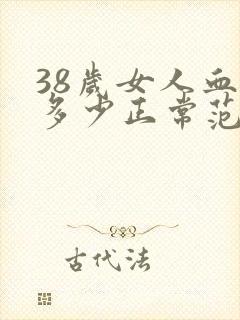 38歲女人血
多少正常范
古代法